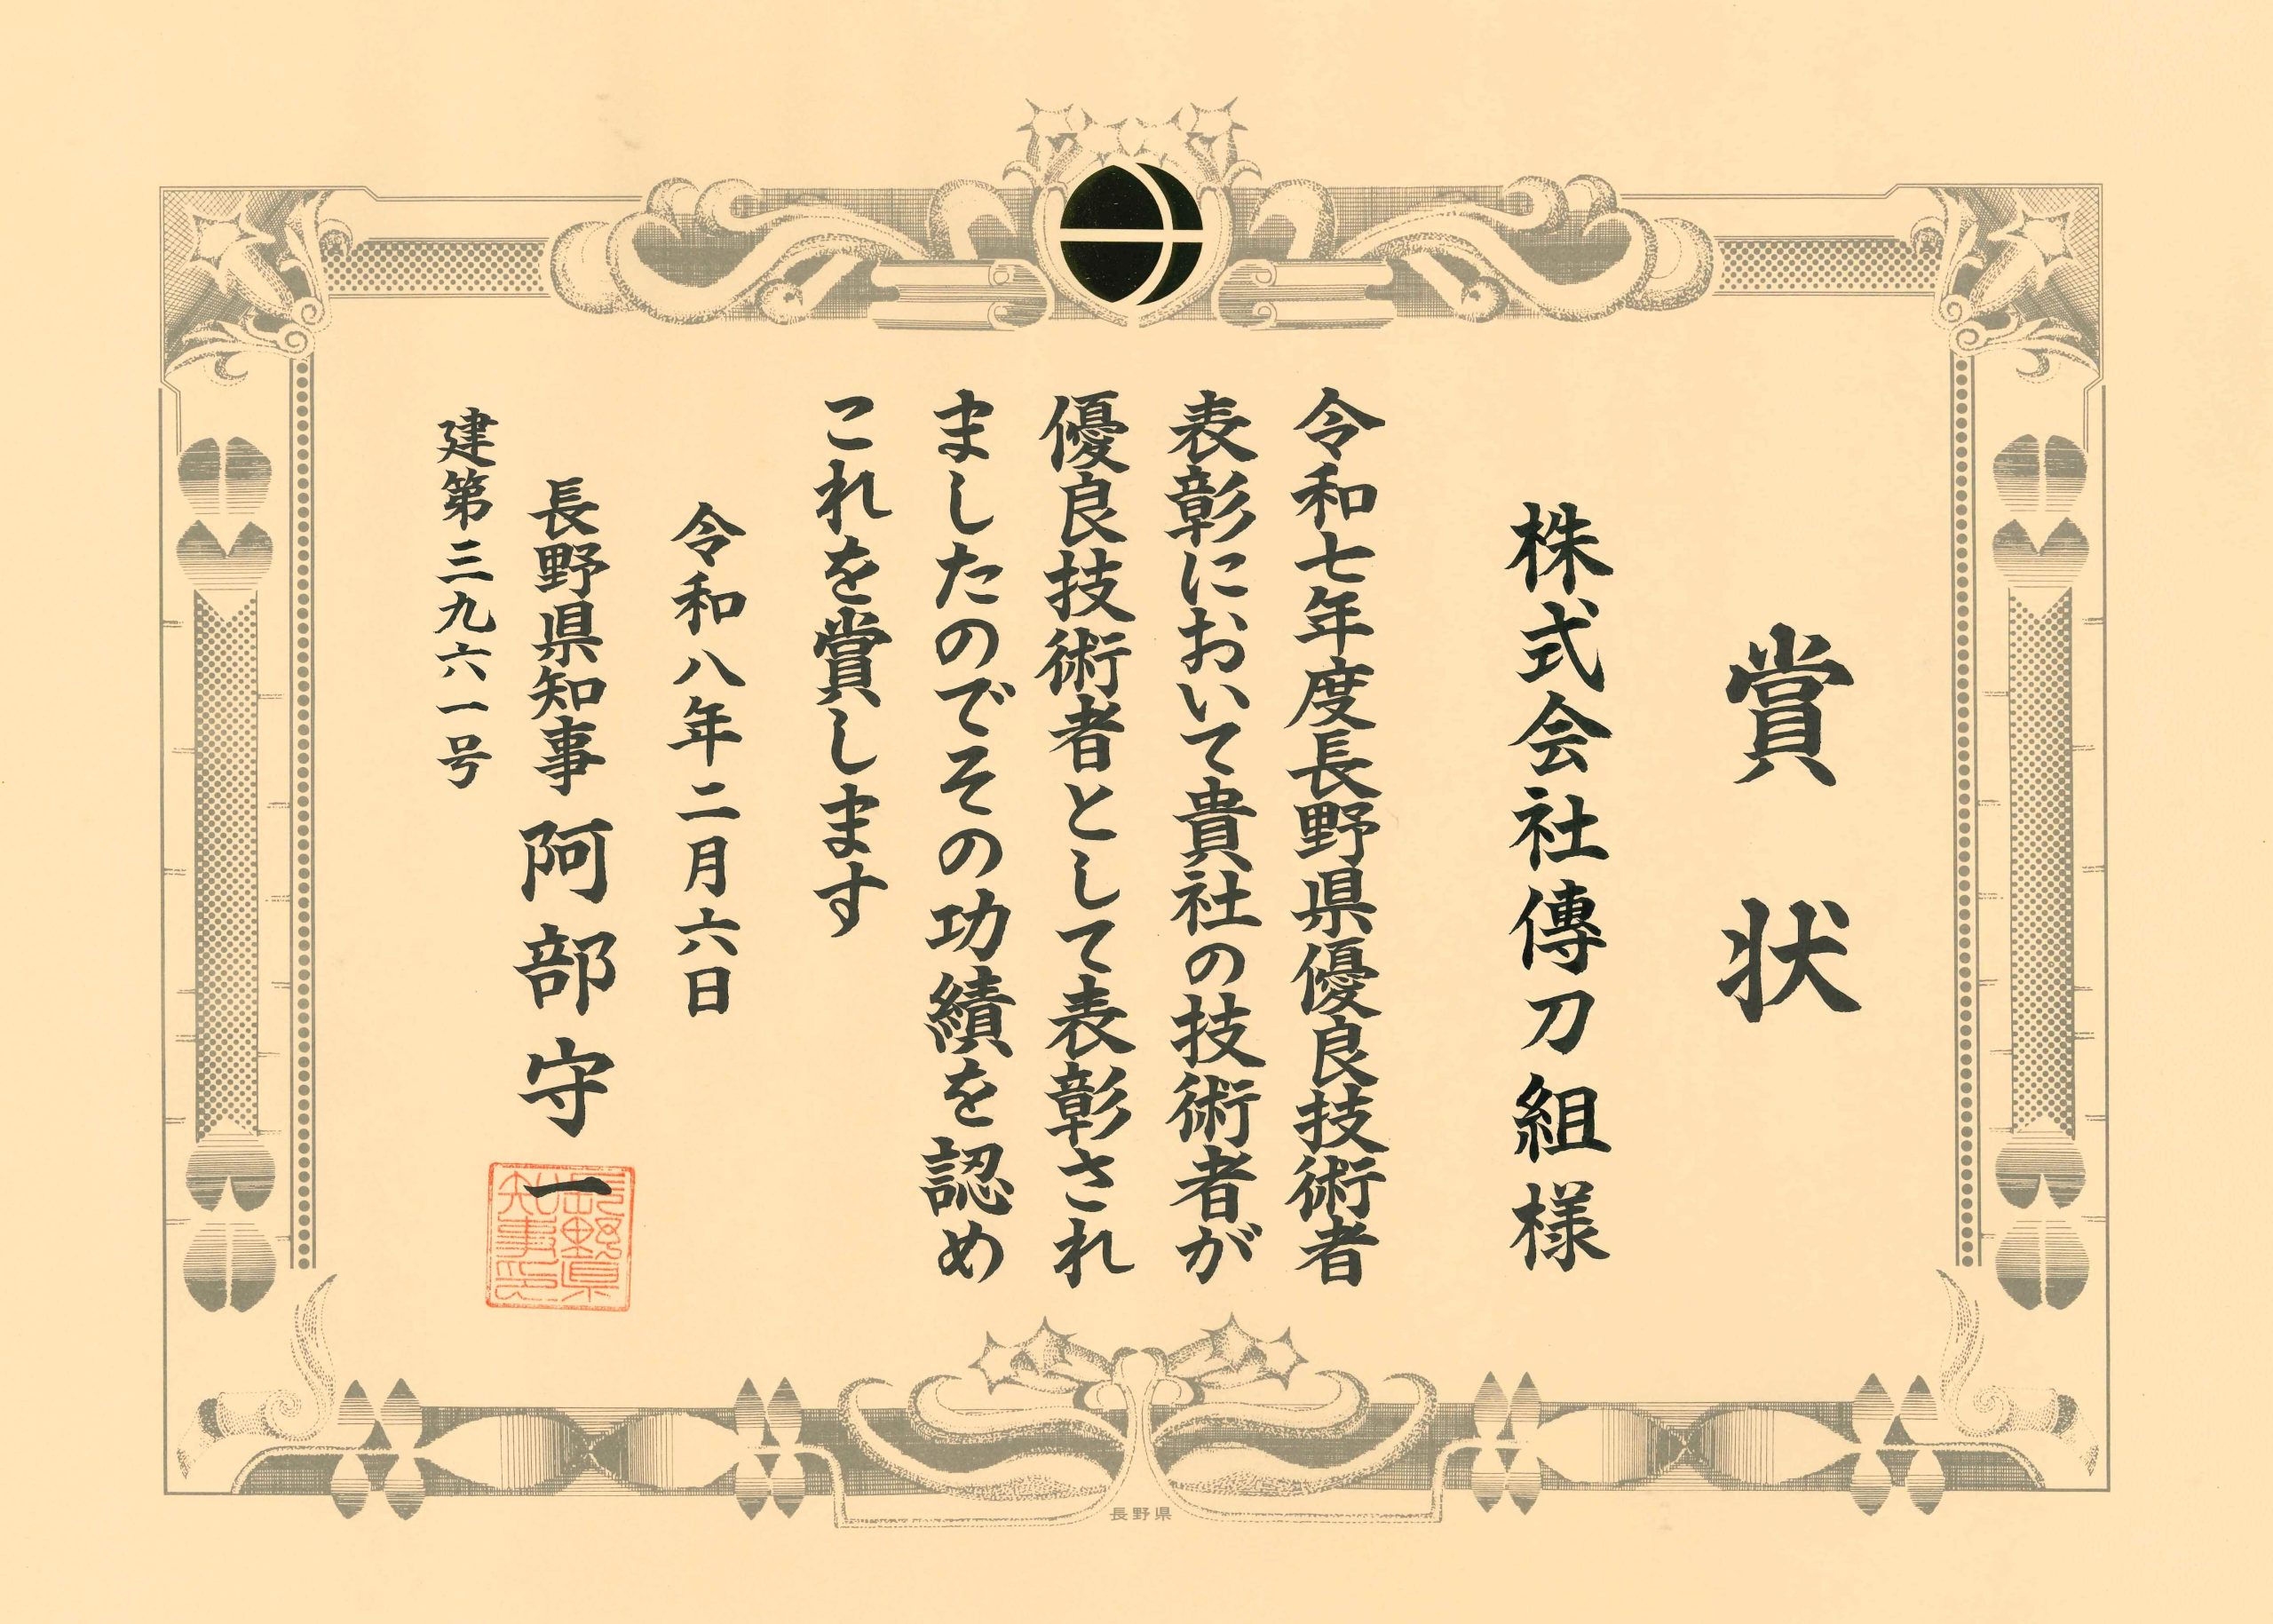 賞状
株式会社傳刀組様
令和七年度長野県優良技術者
表彰において貴社の技術者が
優良技術者として表彰され
ましたのでその功績を認め
これを賞します
令和八年二月六日
長野県知事 阿部守一
建第三九六一号
長野県知事印
長野県